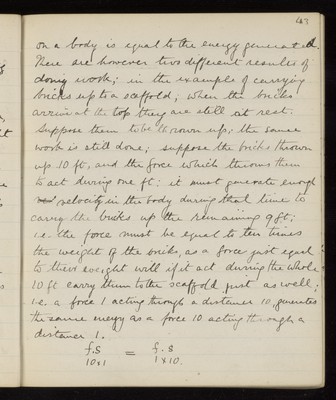 47
on a body is equal to the energy generated.
There are however two different results of
doing work; in the example of carrying
bricks up to a scaffold; when the bricks
arrive at the top they are still at rest.
Suppose them to be thrown up; the same
work is still done; suppose the bricks thrown
up 10 ft, and the force which throws them
to act during one ft: it must generate enough
velocity in the body during that time to
carry the bricks up the remaining 9 ft;
i.e. the force must be equal to ten times
the weight of the bricks, as a force just equal
to their weight will if it act during the whole
10 ft carry them to the scaffold just as well;
i.e. a force 1 acting through a distance 10, generates
the same energy as a force 10 acting through a
distance 1.
f.s = f.s.
10×1 1×10.